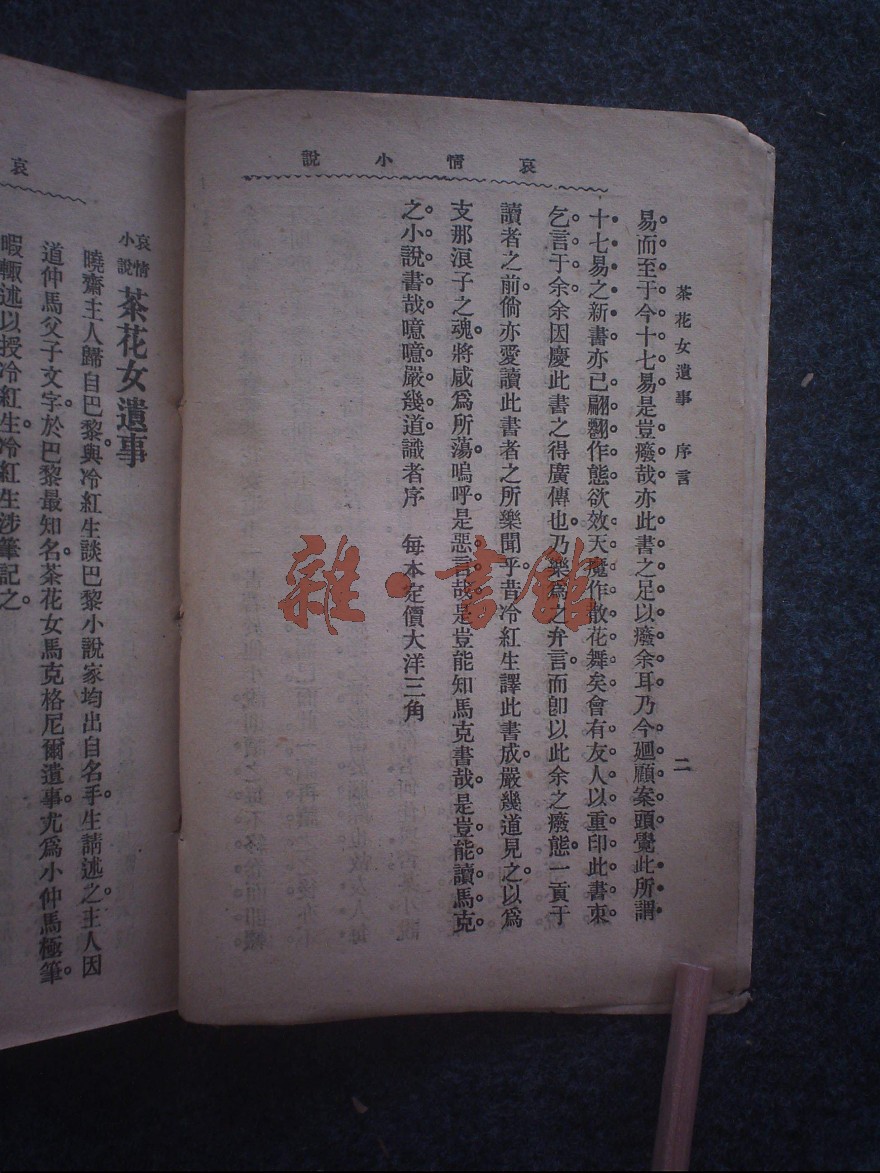 哀情小說
茶花女遺事 序言 二
易而至于今十七易是豈癈哉亦此書之足以癈余耳乃今廻顧案頭覺此所謂
十七易之新書亦已翩翻作態欲效天魔作散花舞矣會有友人以重印此書柬
乞言于余余因慶此書之得廣傳也乃樂爲之弁言而卽以此余之癈態一貢于
讀者之前倘亦愛讀此書者之所樂聞乎昔冷紅生譯此書成嚴幾道見之以爲
支那浪子之魂將咸爲所蕩嗚呼是惡言哉是豈能知馬克書哉是豈能讀馬克
之小說書哉噫噫嚴幾道識者序 每本定價大洋三角
雜·書館
哀
哀情小說 茶花女遺事
曉齋主人歸自巴黎與冷紅生談巴黎小說家均出自名手生請述之主人因
道仲馬父子文字於巴黎最知名茶花女馬克格尼爾遺事尤爲小仲馬極筆
暇輙述以授冷紅生冷紅生涉筆記之